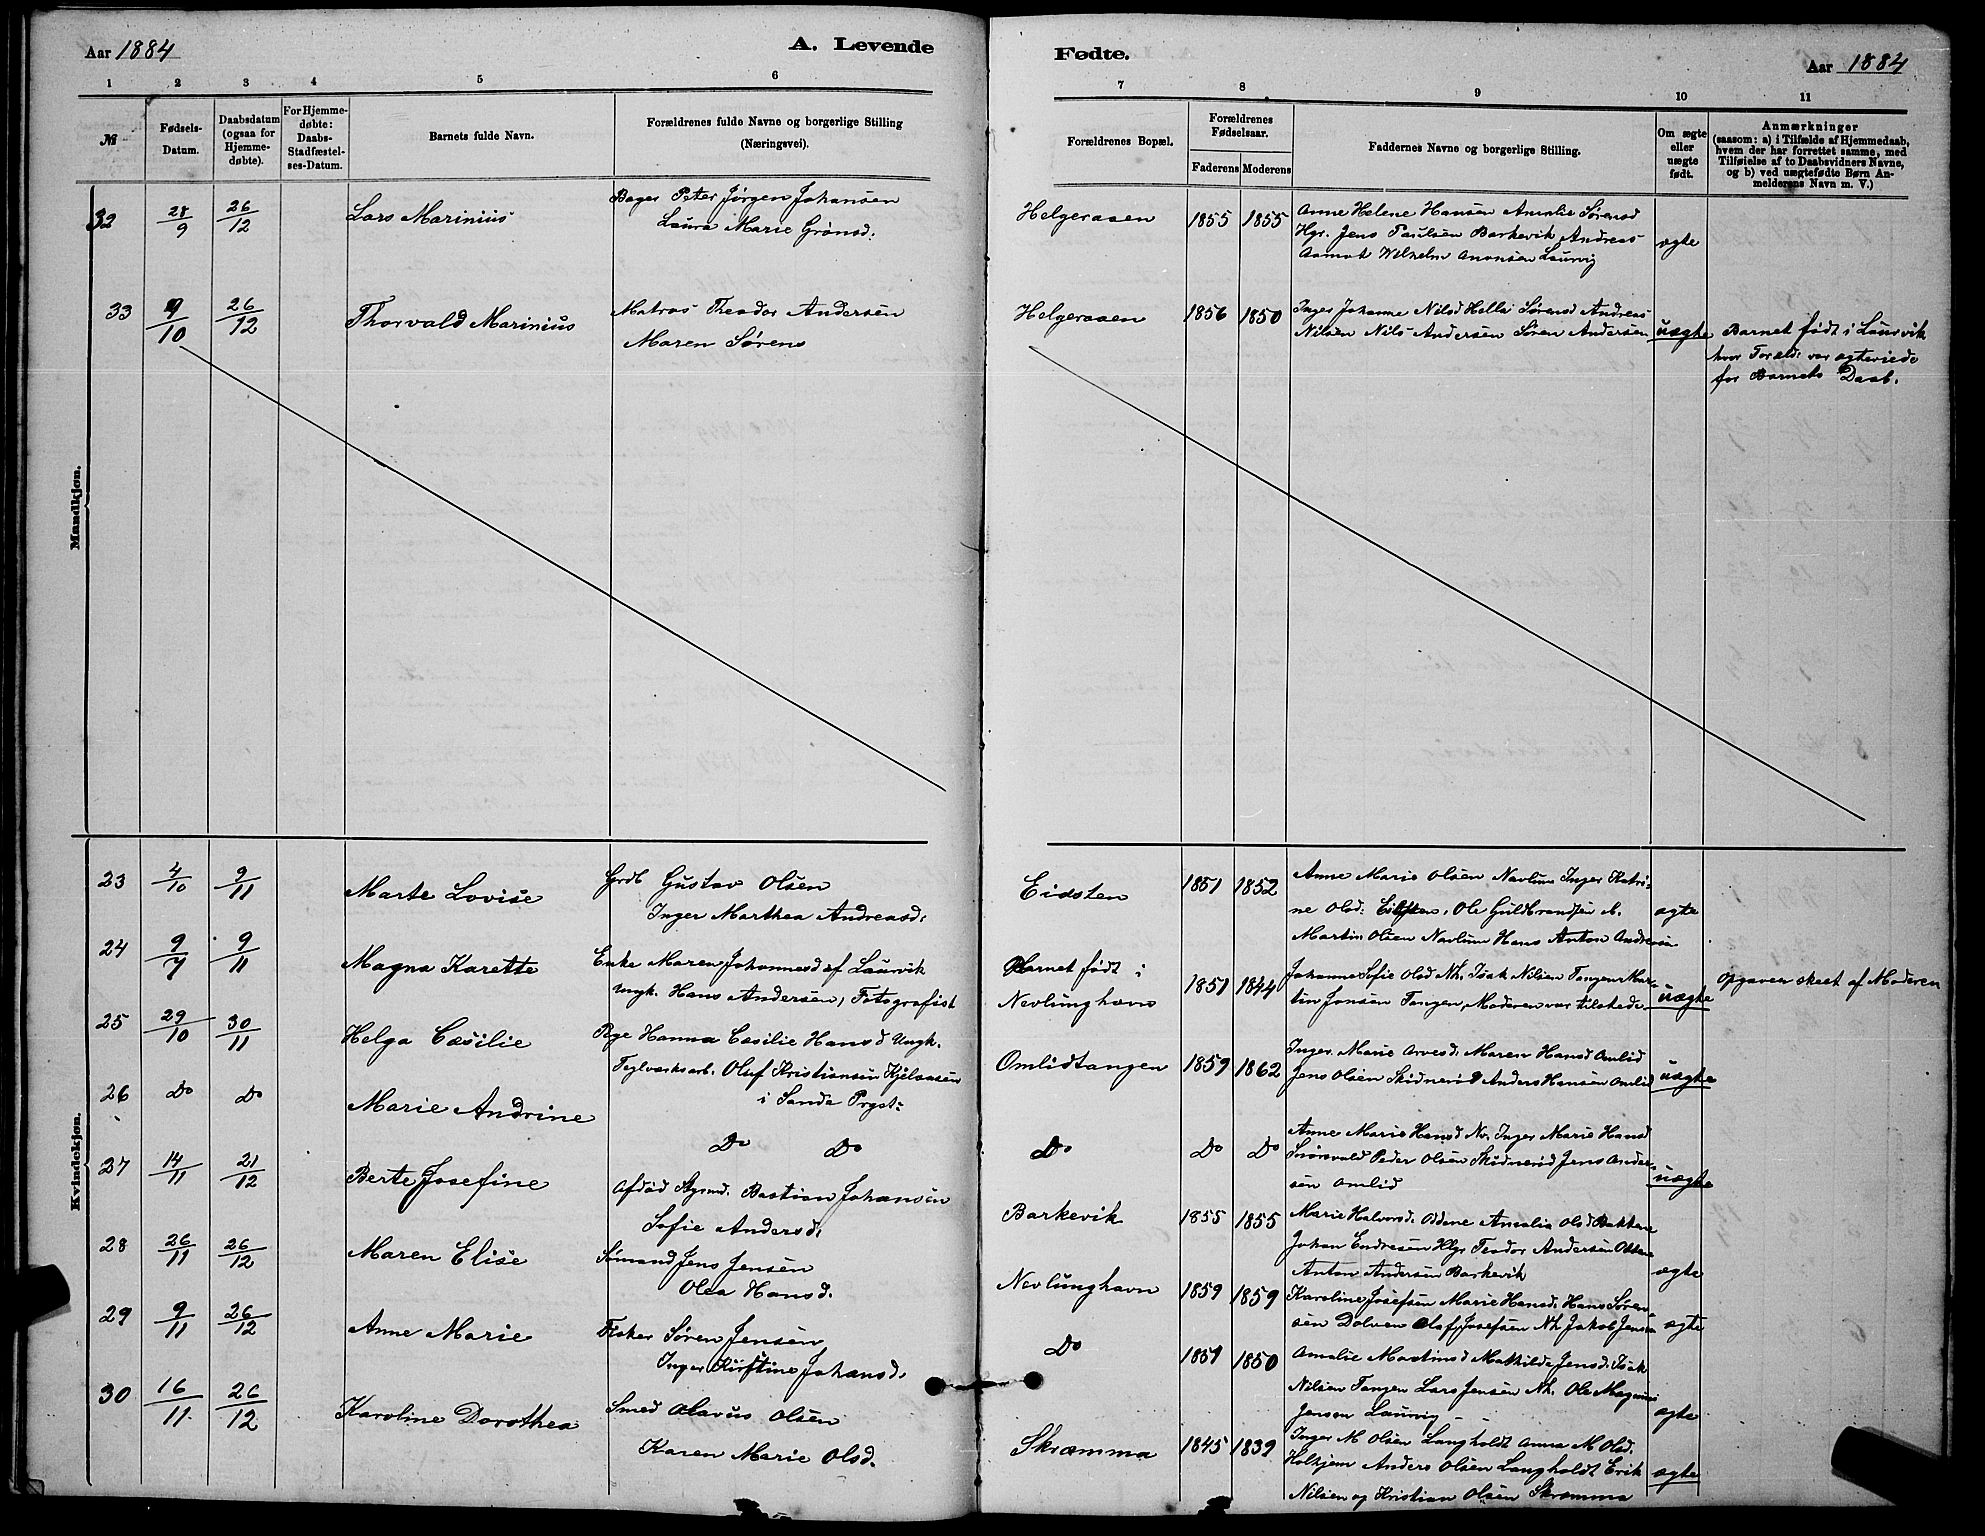 Aar 1884
A. Levende
1 2 3 4 5 6
№
Fødsels-Datum.
Daabsdatum (ogsaa for Hjemme-døbte).
For Hjemme-døbte: Daabs-Stadfæstel-ses-Datum.
Barnets fulde Navn.
Forældrenes fulde Navne og borgerlige Stilling
(Næringsvei).
Mandkjøn.
32 28/9 26/12 Lars Marinius
Bager Peter Jørgen Johansen
Laura Marie Grønsd.
33 9/10 26/12 Thorvald Marinius
Matros Theodor Andersen
Maren Sørens
Kvindekjøn.
23 4/10 9/11 Marte Lovise
Grdb Gustav Olsen
Inger Marthea Andreasd.
24 9/7 9/11 Magna Karette
Enke Maren Johannesd af Laurvik
Ungk. Hans Andersen, Fotografist
25 29/10 30/11 Helga Cæsilie
Pige Hanna Cæsilie Hansd Ungk.
Teglværksarb. Oluf Kristiansen Kjelaasen
i Sande Prgst:
26 Do Do Marie Andrine
Do Do
27 14/11 21/12 Berte Josefine
Afdød Styrmd. Bastian Johansen
Sofie Andersd.
28 26/11 26/12 Maren Elise
Sømand Jens Jensen
Olea Hansd.
29 9/11 26/12 Anne Marie
Fisker Søren Jensen
Inger Kirstine Johansd.
30 16/11 26/12 Karoline Dorothea
Smed Olavus Olsen
Karen Marie Olsd.
Fødte.
Aar 1884
7 8 9 10 11
Forældrenes Bopæl.
Forældrenes Fødselsaar.
Faderens Moderens
Faddernes Navne og borgerlige Stilling.
Om ægte eller uægte født.
Anmærkninger
(saasom: a) i Tilfælde af Hjemmedaab,
hvem der har forrettet samme, med
Tilføielse af to Daabsvidners Navne,
og b) ved uægtefødte Børn An-
melderens Navn m. V.)
Helgeraaen 1855 1855
Anne Helene Hansen Amalie Sørensd
Hgr. Jens Paulsen Barkevik Andreas
Aamot Wilhelm Anonsen Laurvig
ægte
Helgeraaen 1856 1850
Inger Johanne Nilsd Hella Sørensd Andreas
Nilsen Nils Andersen Søren Andersen
uægte
Barnet født i Laurvik
hvor Foræld: var ægteviede
for Barnets Daab.
Eidsten 1851 1852
Anne Marie Olsen Nevlung Inger Katri-
ne Olsd: Eidsten, Ole Guldbrandsen
Martin Olsen Nevlung Hans Anton Andresen
ægte
Barnet født i
Nevlunghavn 1851 1844
Johanne Sofie Olsd Nh. Isak Nilsen Tangen Mar-
tin Jonsen Tangen, Moderen var tilstede.
uægte
Opgaven skeet af Moderen
Omlidtangen 1859 1862
Inger Marie Arvesd. Maren Hansd Omlid
Jens Olsen Skidnerød Anders Hansen Omlid
uægte
Do Do Do
Anne Marie Hansd Nv. Inger Marie Hansd
Peder Olsen Skidnerød Jens Ander-
sen Omlid
uægte
Barkevik 1855 1855
Marie Halvorsd. Oddene Amalie Olsd Bakken
Johan Endresen Hlgr Teodor Andersen
Anton Andersen Barkevik
ægte
Nevlunghavn 1859 1859
Karoline Josefsen Marie Hansd. Hans Søren-
sen Dolven Olaf Josefsen Nh Jakob Jensen
ægte
Do 1851 1850
Amalie Martinsd Mathilde Jensd. Isak
Nilsen Tangen Lars Jensen Nh. Ole Magnus
Jensen Laurvig
ægte
Skræmma 1845 1839
Inger M Olsen Langholdt Anna M Olsd.
Holhjem Anders Olsen Langholdt Erik
Nilsen og Kristian Olsen Skræmma
ægte